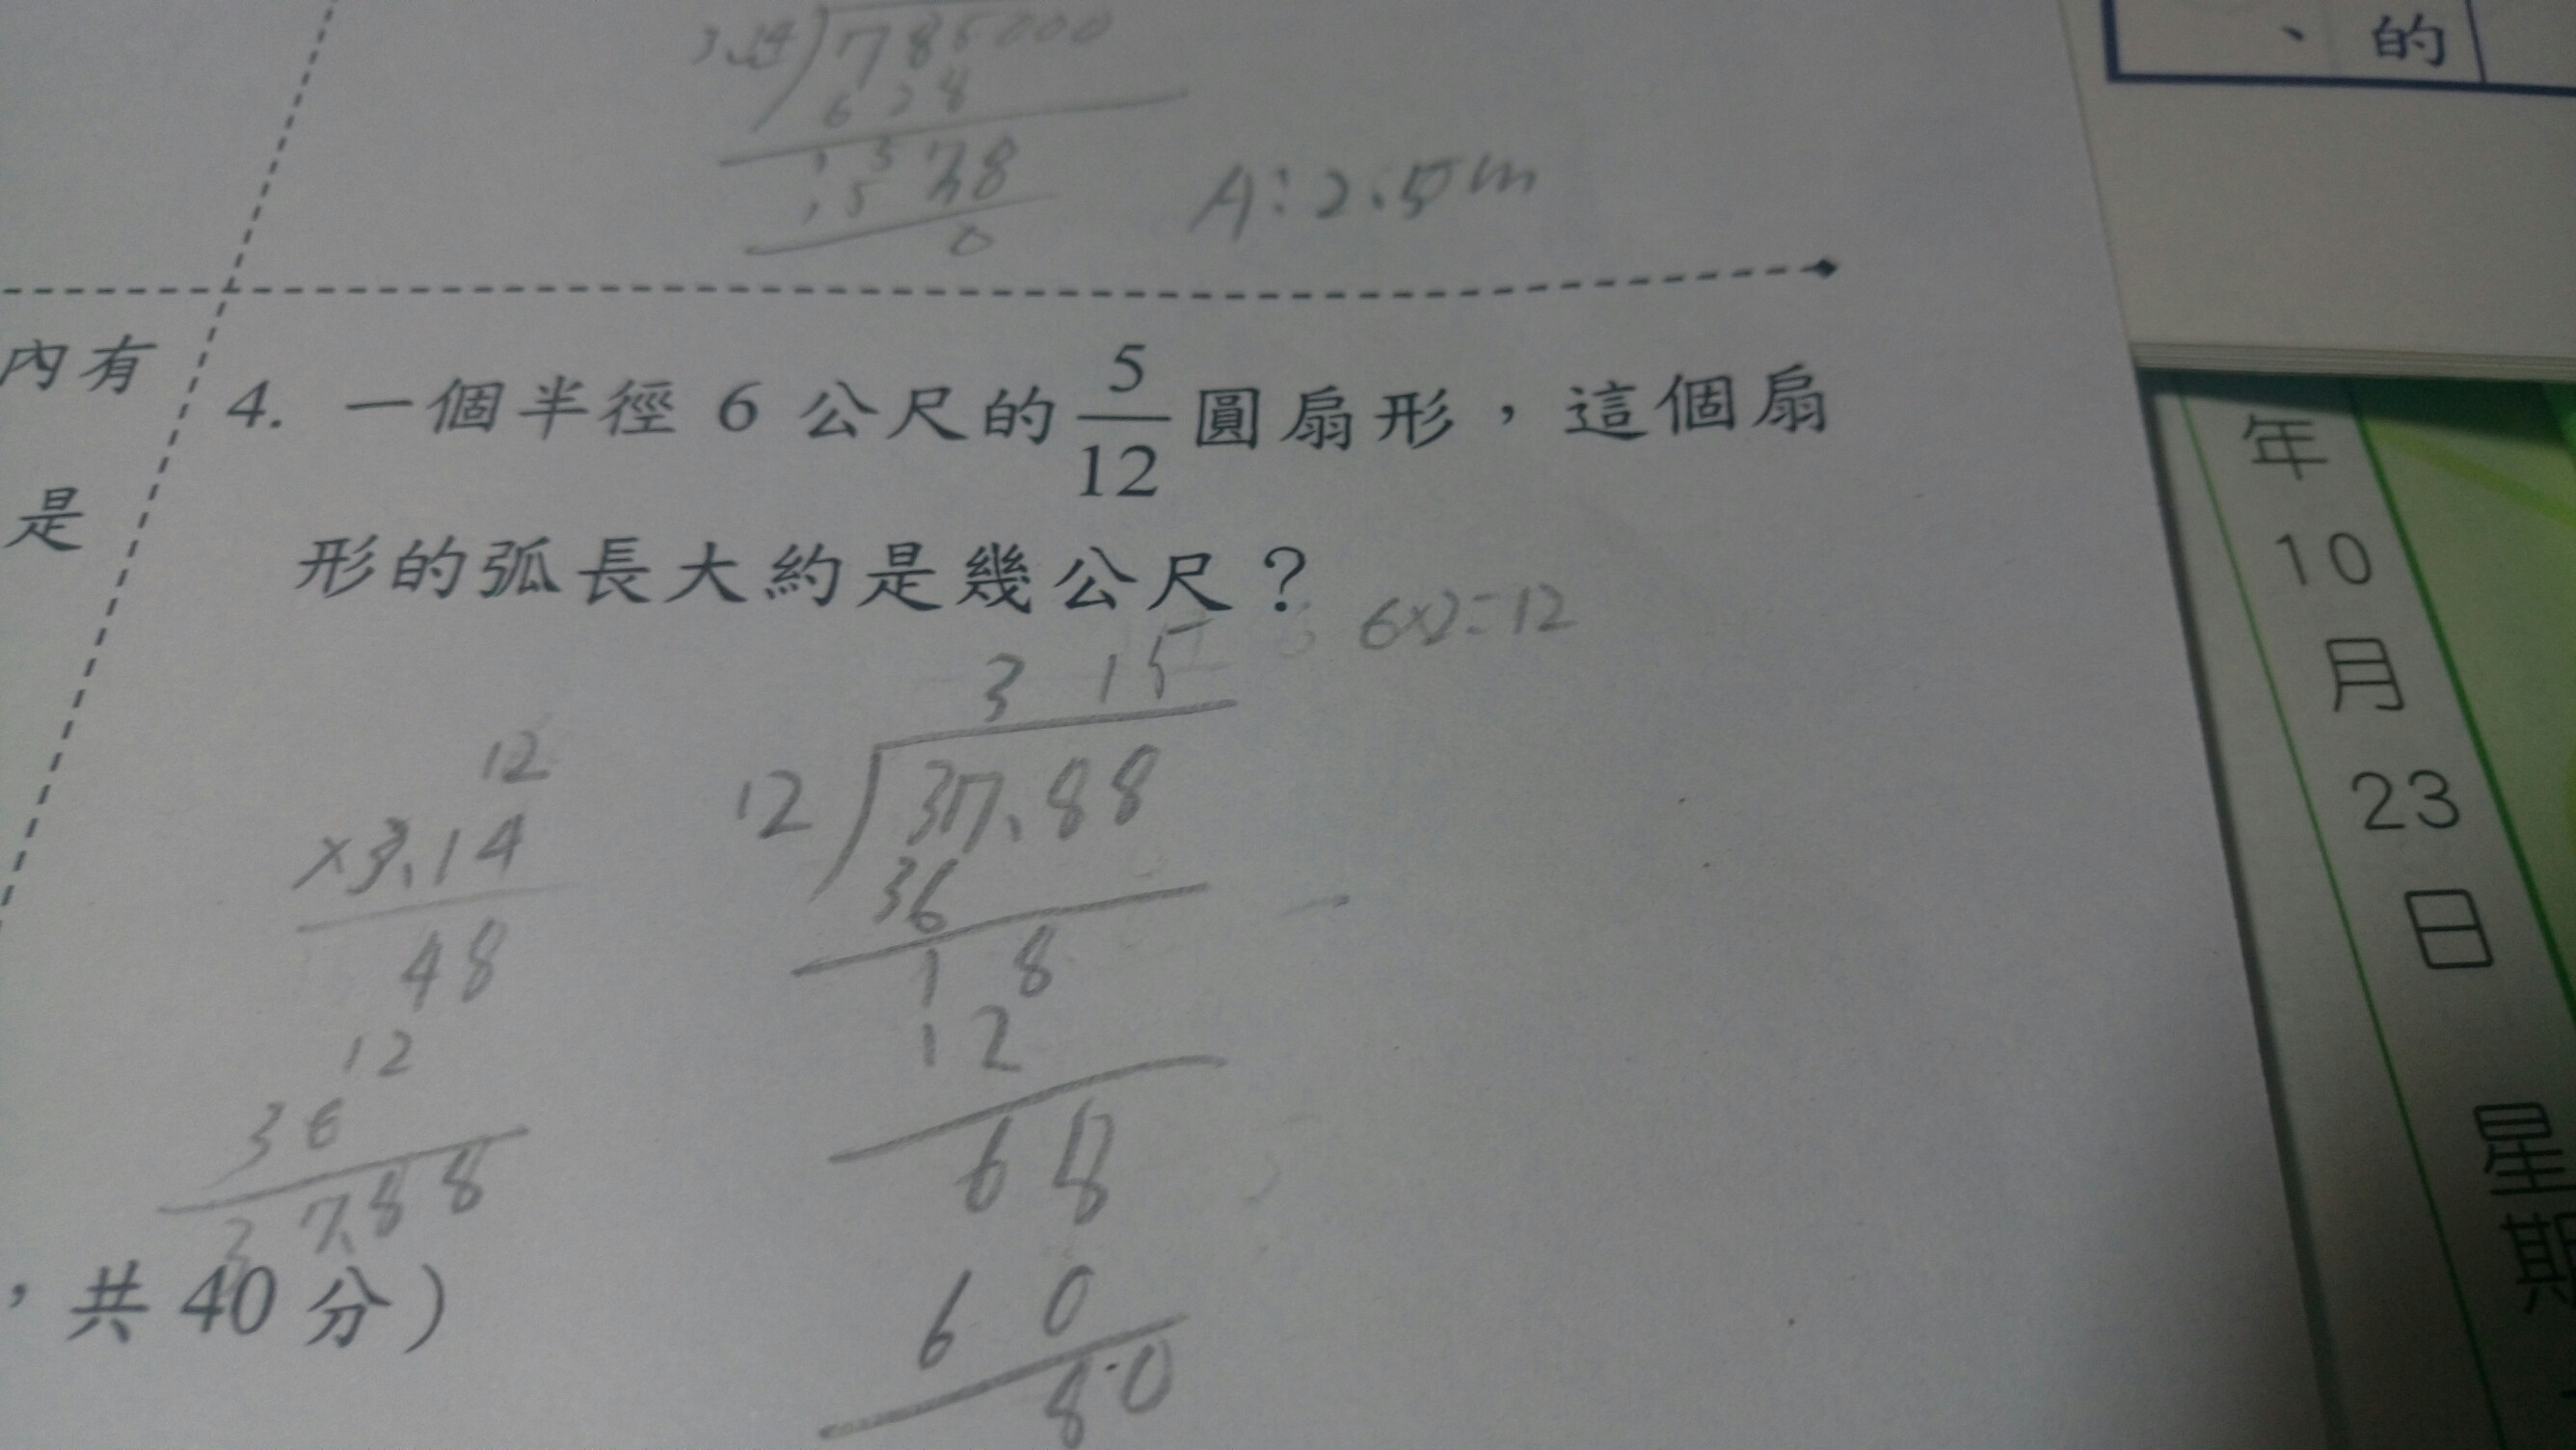 3.14 785000
628
1578
A:2.5m
0
、的
內有
是
4. 一個半徑 6 公尺的 5/12 圓扇形，這個扇
形的弧長大約是幾公尺？
6×2=12
3 15
12
×3.14
48
12
36
37.88
12 37.88
36
1 8
12
68
60
80
，共 40 分）
年
10
月
23
日
星
期